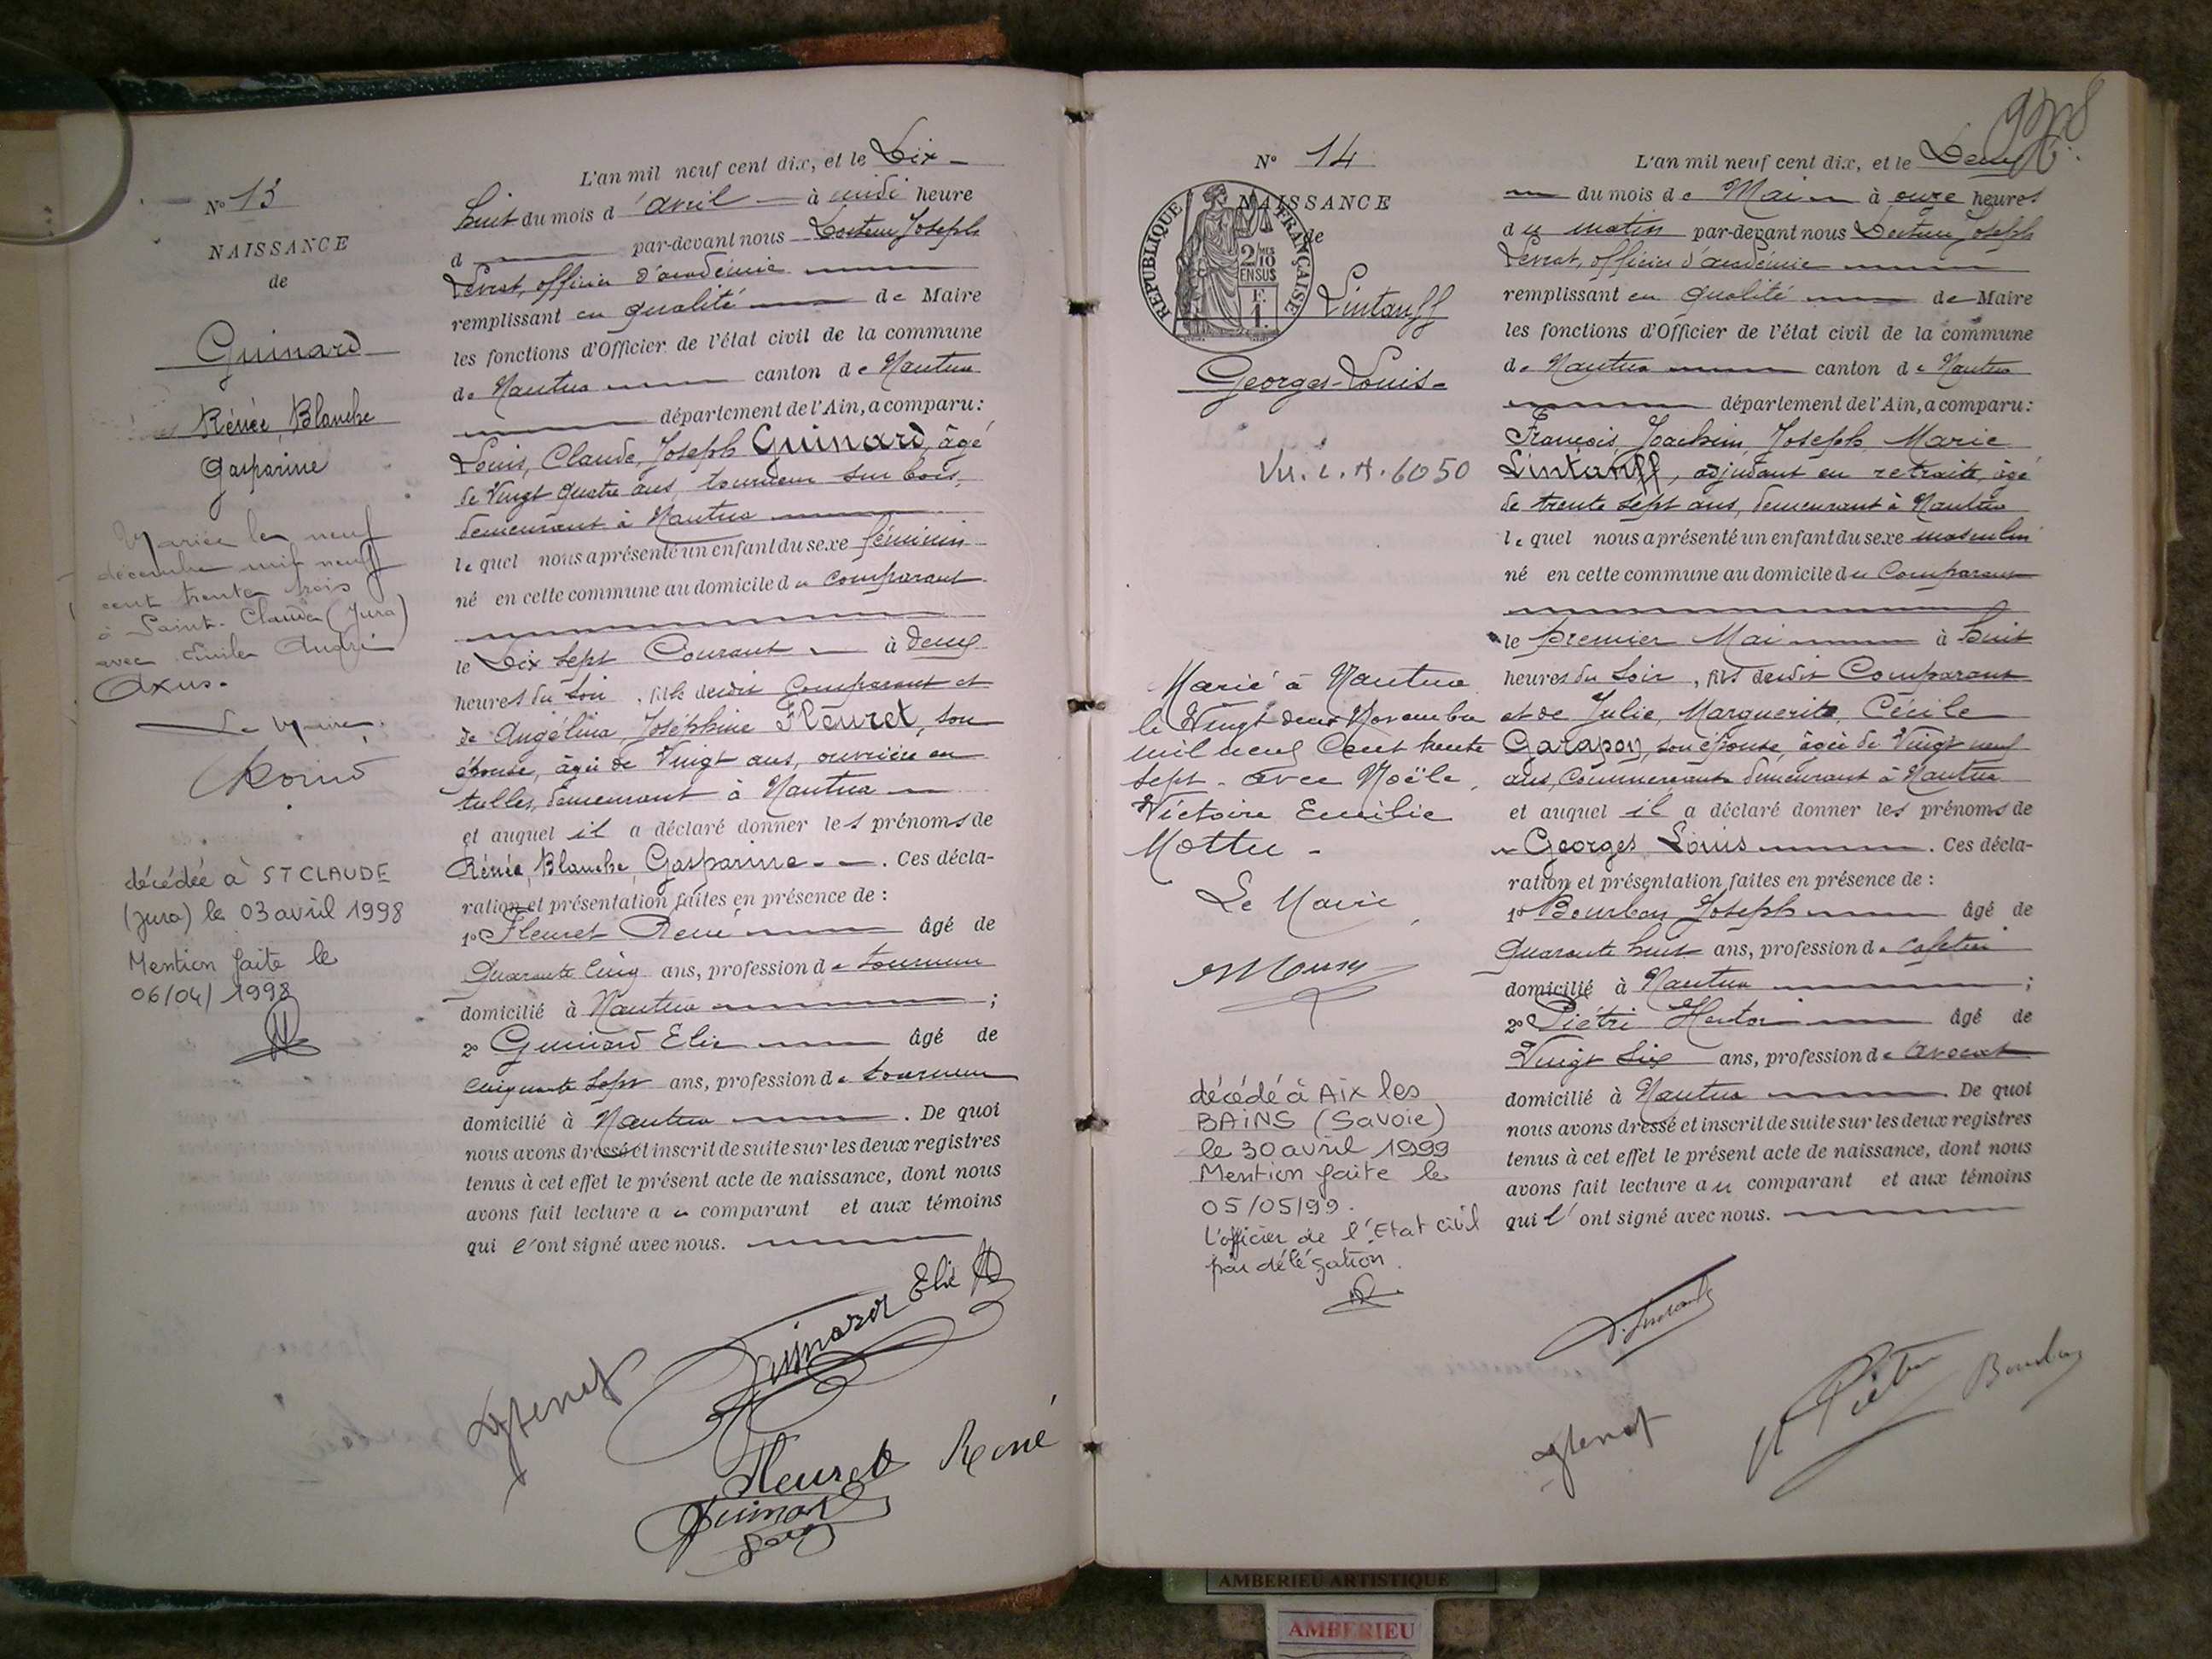 N° 13
NAISSANCE
de
Guinard
Rénée, Blanche
Gasparine
Mariée le neuf
décembre mil neuf
cent trente trois
à Saint-Claude (Jura)
avec Emile André
Le Maire,
décédée à ST CLAUDE
(Jura) le 03 avril 1998
Mention faite le
06/04/1998
L'an mil neuf cent dix, et le Dix-
huit du mois d'avril à midi heure
d par-devant nous Docteur Joseph
Levrat, officier d'académie
remplissant en qualité de Maire
les fonctions d'Officier de l'état civil de la commune
de Nantua canton de Nantua
département de l'Ain, a comparu:
Louis, Claude, Joseph Guinard, âgé
de Vingt quatre ans, tourneur sur bois,
demeurant à Nantua
lequel nous a présenté un enfant du sexe féminin
né en cette commune au domicile du comparant
le Dix sept Courant à deux
heures du soir, fille dudit Comparant et
de Angélina, Joséphine Fleuret, son
épouse, âgée de Vingt ans, ouvrière en
tulles, demeurant à Nantua
et auquel il a déclaré donner les prénoms de
Rénée, Blanche, Gasparine. Ces décla-
ration et présentation faites en présence de :
1° Fleuret René âgé de
Quarante Cinq ans, profession de tourneur
domicilié à Nantua ;
2° Guinard Elie âgé de
cinquante sept ans, profession de tourneur
domicilié à Nantua . De quoi
nous avons dressé et inscrit de suite sur les deux registres
tenus à cet effet le présent acte de naissance, dont nous
avons fait lecture au comparant et aux témoins
qui l'ont signé avec nous.
Guinard Elie
Fleuret René
Guinard
N° 14
NAISSANCE
de
REPUBLIQUE FRANÇAISE
2/10 EN SUS
Lintanff
Georges-Louis
6050
Marié à Nantua
le Vingt deux Novembre
mil neuf Cent trente
sept - avec Noële,
Victoire Emilie
Mottu -
Le Maire,
décédé à Aix les
BAiNS (Savoie)
le 30 avril 1999
Mention faite le
05/05/99.
L'officier de l'Etat civil
par délégation.
L'an mil neuf cent dix, et le Deux
du mois de Mai à onze heures
du matin par-devant nous Docteur Joseph
Levrat, officier d'académie
remplissant en qualité de Maire
les fonctions d'Officier de l'état civil de la commune
de Nantua canton de Nantua
département de l'Ain, a comparu:
François, Joachim, Joseph, Marie
Lintanff, adjudant en retraite, âgé
de trente sept ans, demeurant à Nantua
lequel nous a présenté un enfant du sexe masculin
né en cette commune au domicile du Comparant
le premier Mai à huit
heures du Soir, fils dudit Comparant
et de Julie, Marguerite, Cécile
Garapon, son épouse, âgée de Vingt neuf
ans, Commerçante demeurant à Nantua
et auquel il a déclaré donner les prénoms de
Georges Louis . Ces décla-
ration et présentation faites en présence de :
1° Bourbon Joseph âgé de
Quarante huit ans, profession de cafetier
domicilié à Nantua ;
2° Piétri Hector âgé de
Vingt Six ans, profession de avocat
domicilié à Nantua . De quoi
nous avons dressé et inscrit de suite sur les deux registres
tenus à cet effet le présent acte de naissance, dont nous
avons fait lecture au comparant et aux témoins
qui l'ont signé avec nous.
H Piétri
AMBERIEU ARTISTIQUE
AMBERIEU